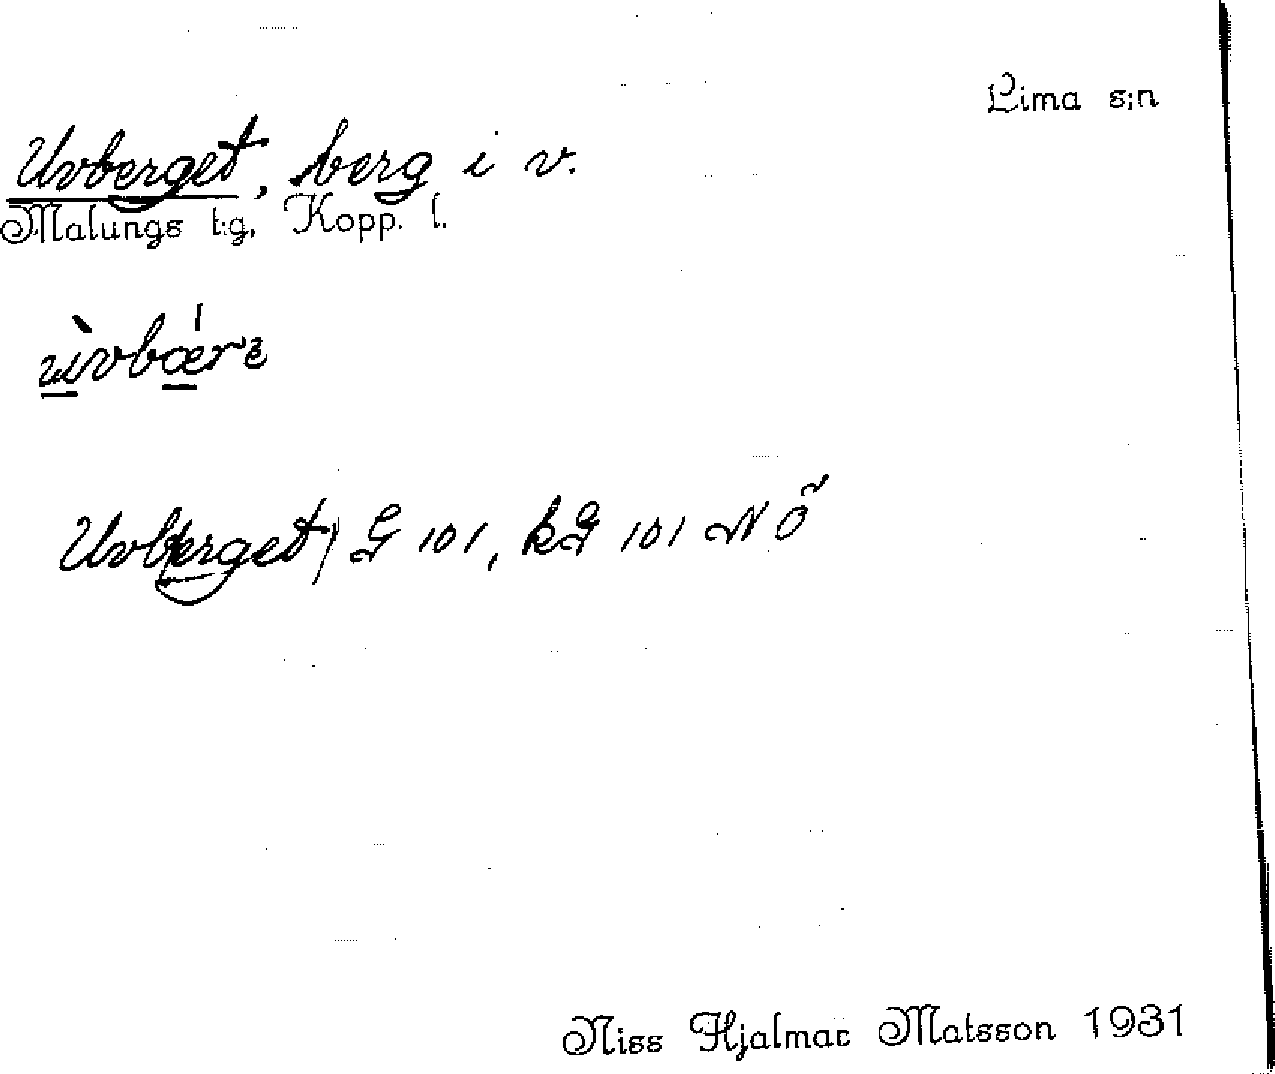 Lima s:n
Uvberget, berg i v.
Malungs t:g, Kopp. l.
Uvberget) G 101, kG 101 N Ö
Niss Hjalmar Matsson 1931